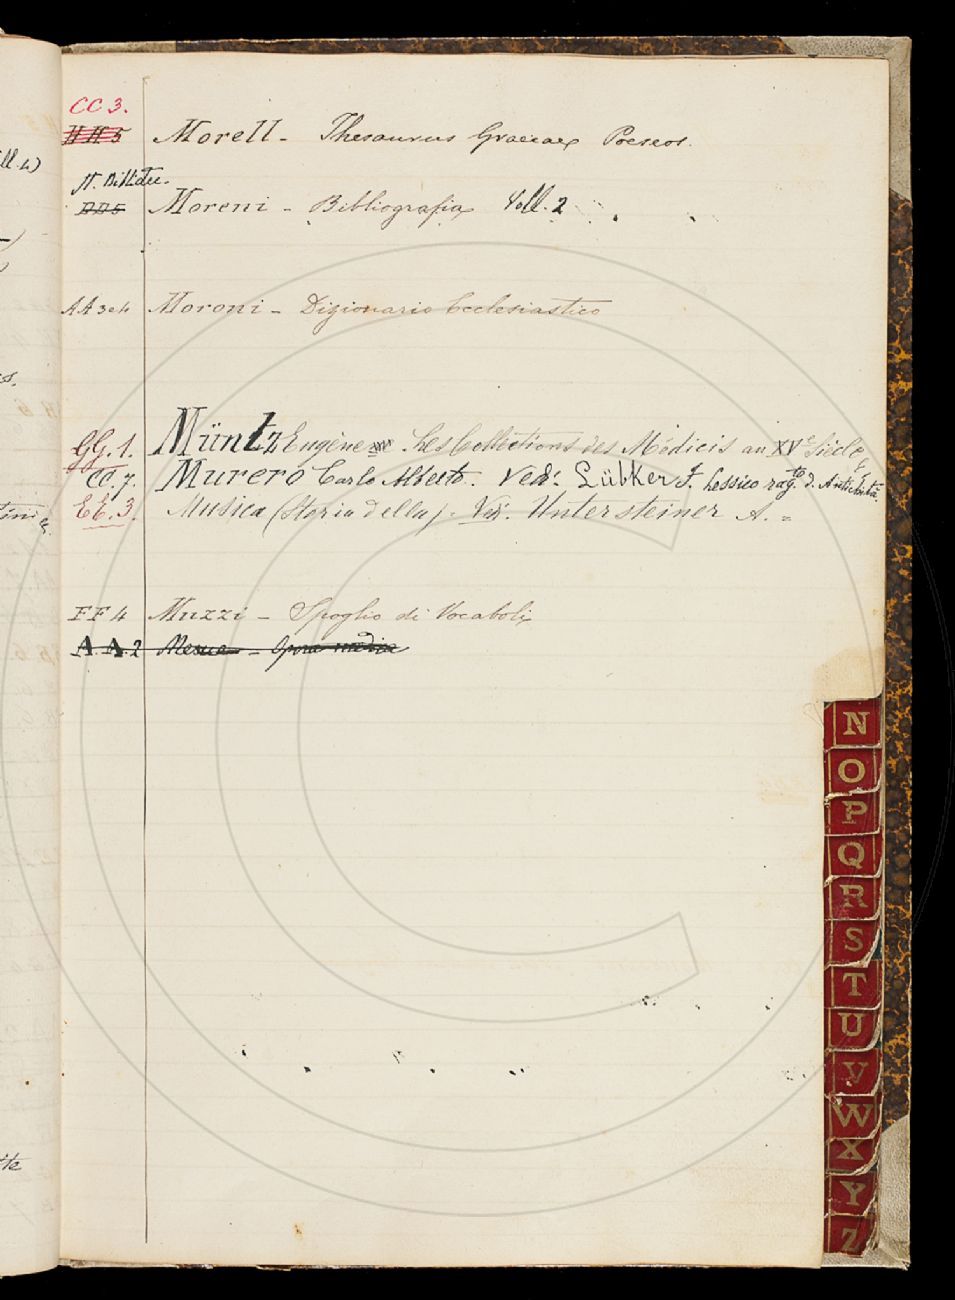 CC 3.
HH 5 Morell - Thesaurus Graecae Poeseos.
N. Bibliotec.
DD5 Moreni - Bibliografia Voll. 2
AA 3 e 4 Moroni - Dizionario Ecclesiastico
GG. 1. Müntz Eugène Les Collections des Médicis au XVe Siècle
CC. 7. Murero Carlo Alberto. Vedi. Lübker F. Lessico rag.to d. Antichità
EE. 3. Musica (Storia della). Vedi. Untersteiner A. =
FF 4 Muzzi - Spoglio di Vocaboli
A A. 2 Mesue - Opera medica
N
O
P
Q
R
S
T
U
V
W
X
Y
Z